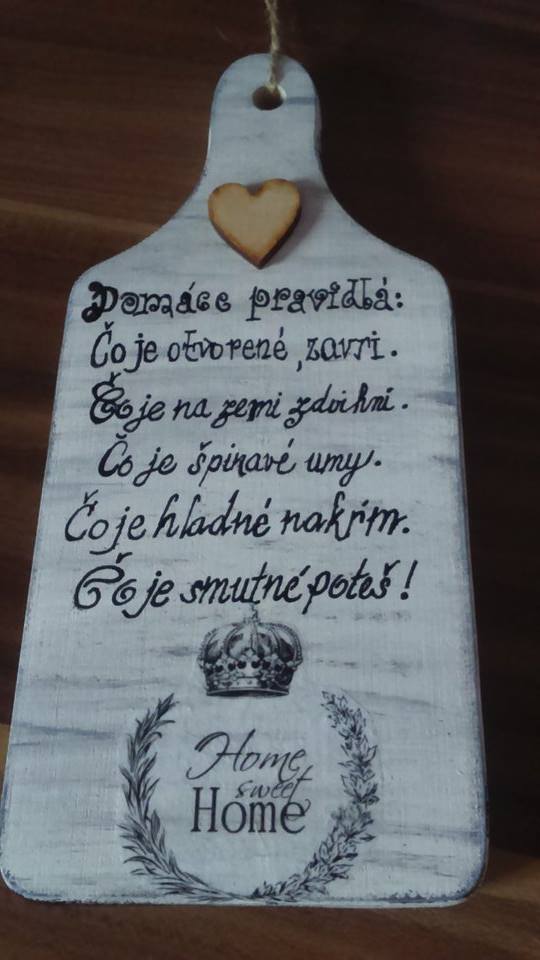 Domáce pravidlá:
Čo je otvorené ,zavri.
Čo je na zemi zdvihni.
Čo je špinavé umy.
Čo je hladné nakŕm.
Čo je smutné poteš!
Home
sweet
Home